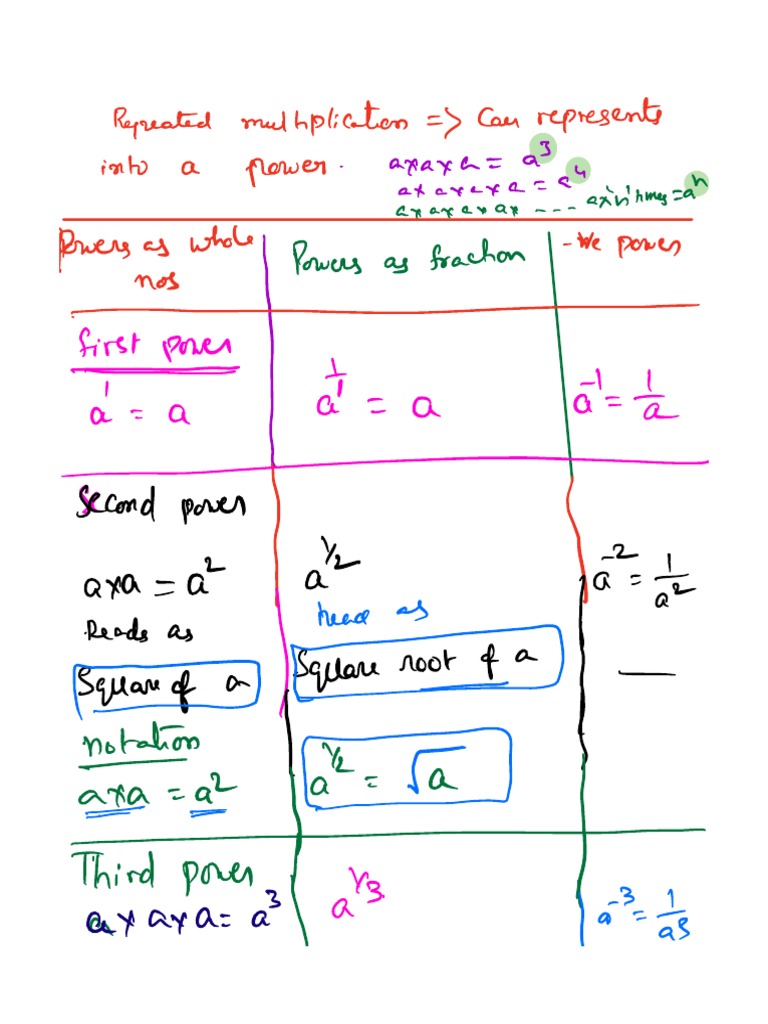 Repeated multiplication => Can represents
into a power. a×a×a = a³
a×a×a×a = a⁴
a×a×a×a× --- a×'n' times = aⁿ
Powers as whole nos
Powers as fraction
-ve power
first power
a¹ = a
a^1/1 = a
a⁻¹ = 1/a
Second power
a×a = a²
a^1/2
a⁻² = 1/a²
Reads as
read as
Square of a
Square root of a
notation
a×a = a²
a^1/2 = √a
Third power
a×a×a = a³
a^1/3
a⁻³ = 1/a3